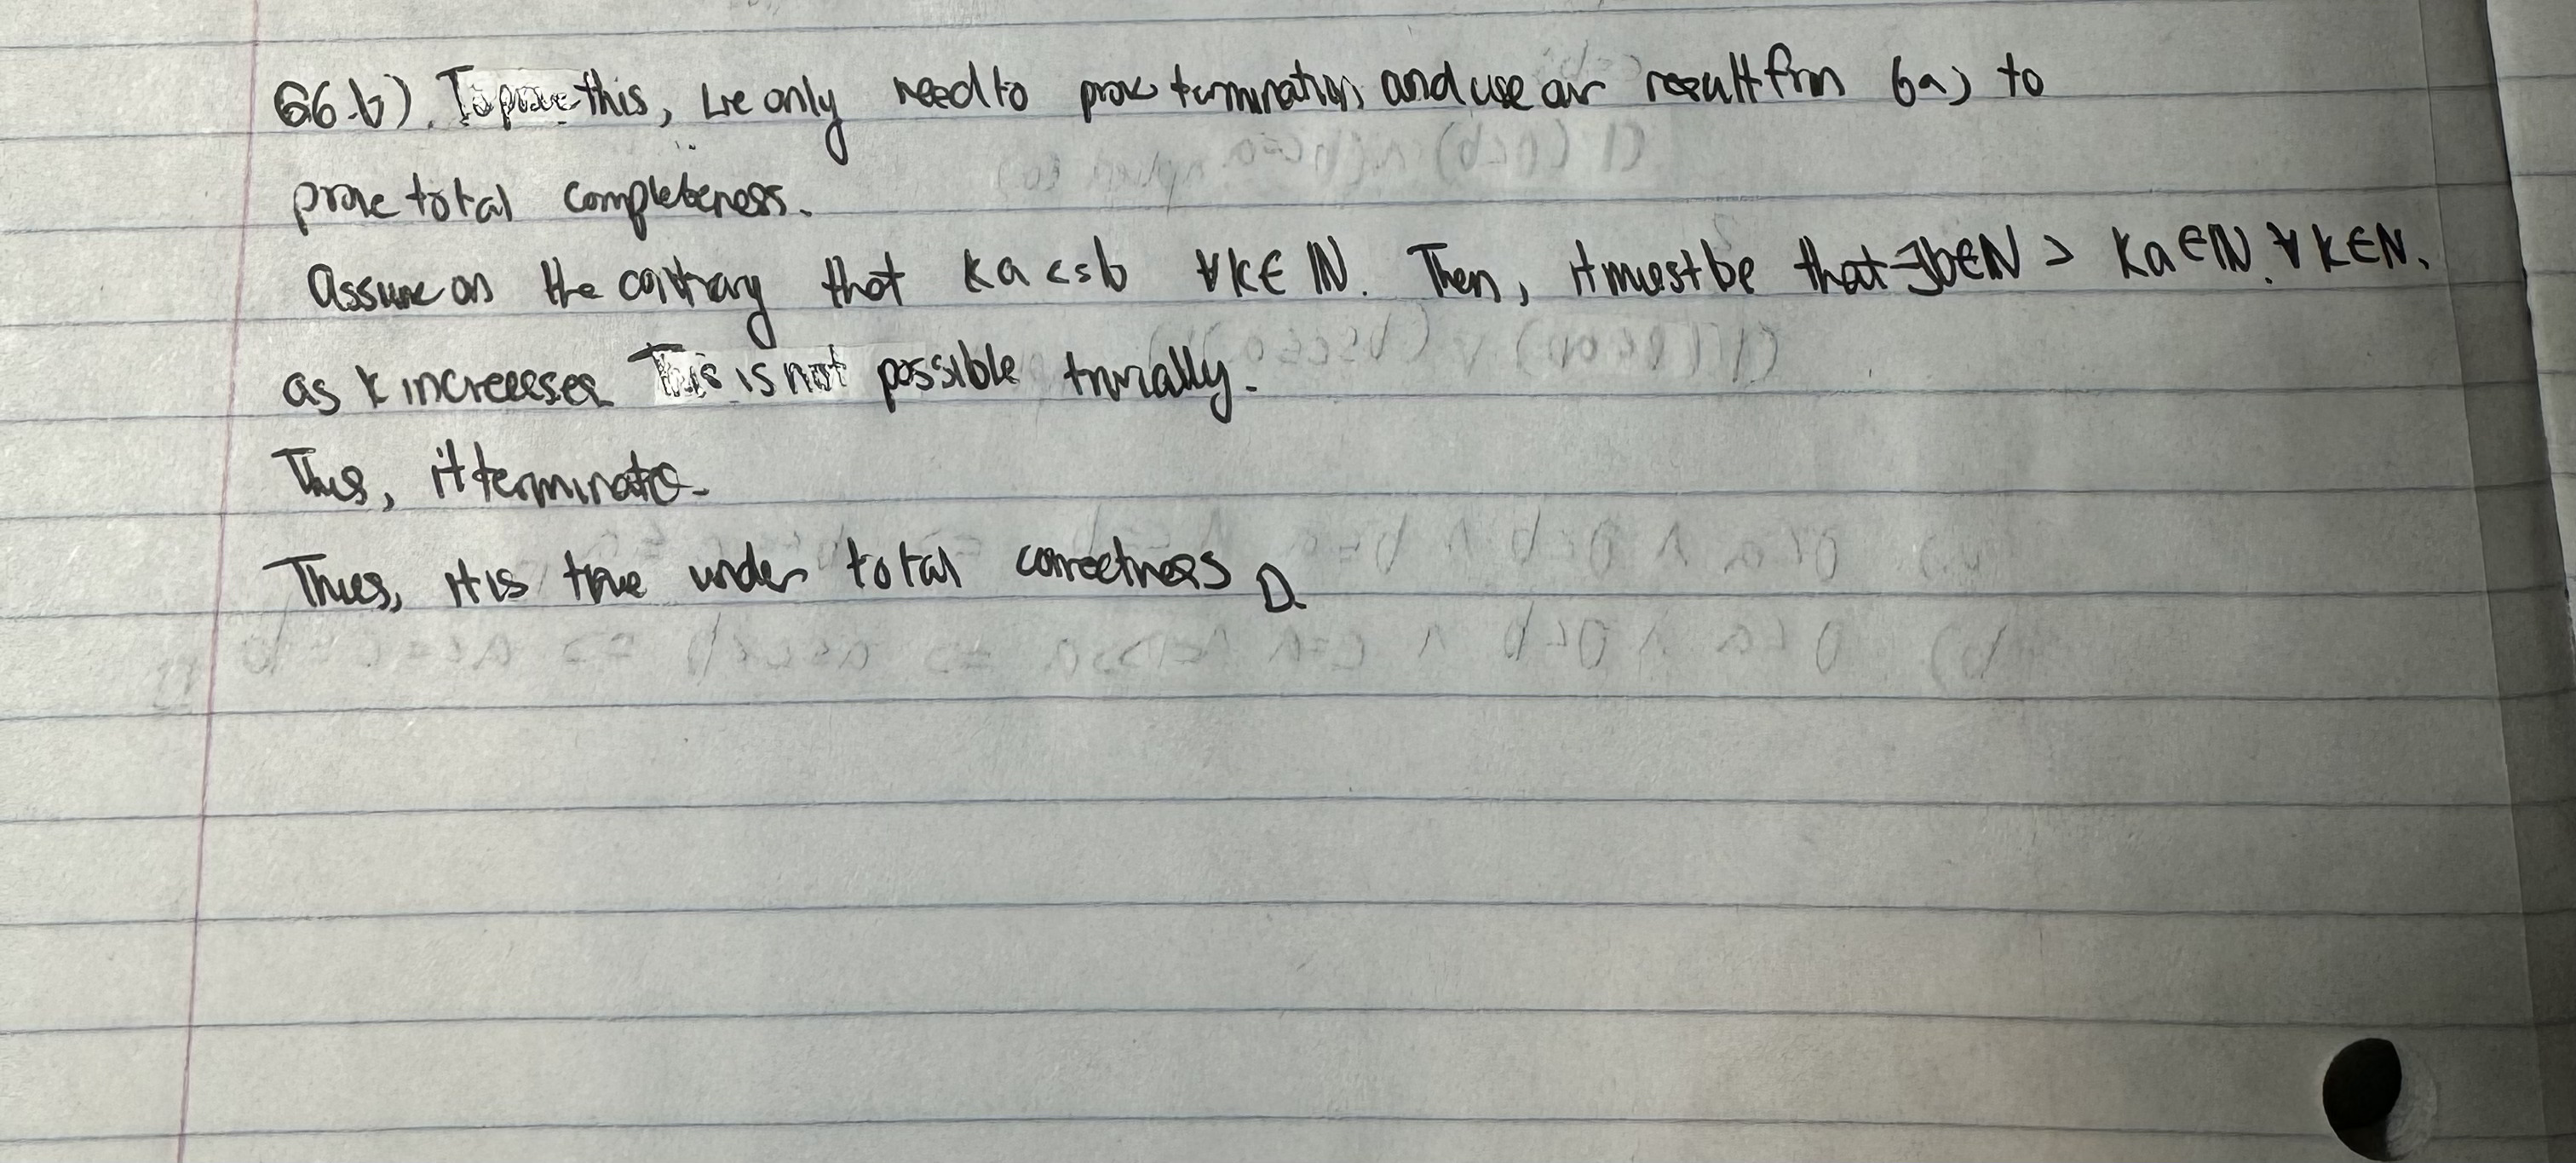 Q6.b). To prove this, we only need to prove termination and use our result from 6a) to
prove total completeness.
Assume on the contrary that ka <= b ∀k∈ℕ. Then, it must be that ∃b∈ℕ > ka∈ℕ. ∀k∈ℕ.
as k increases. This is not possible trivially.
Thus, it terminates.
Thus, it is true under total correctness □.